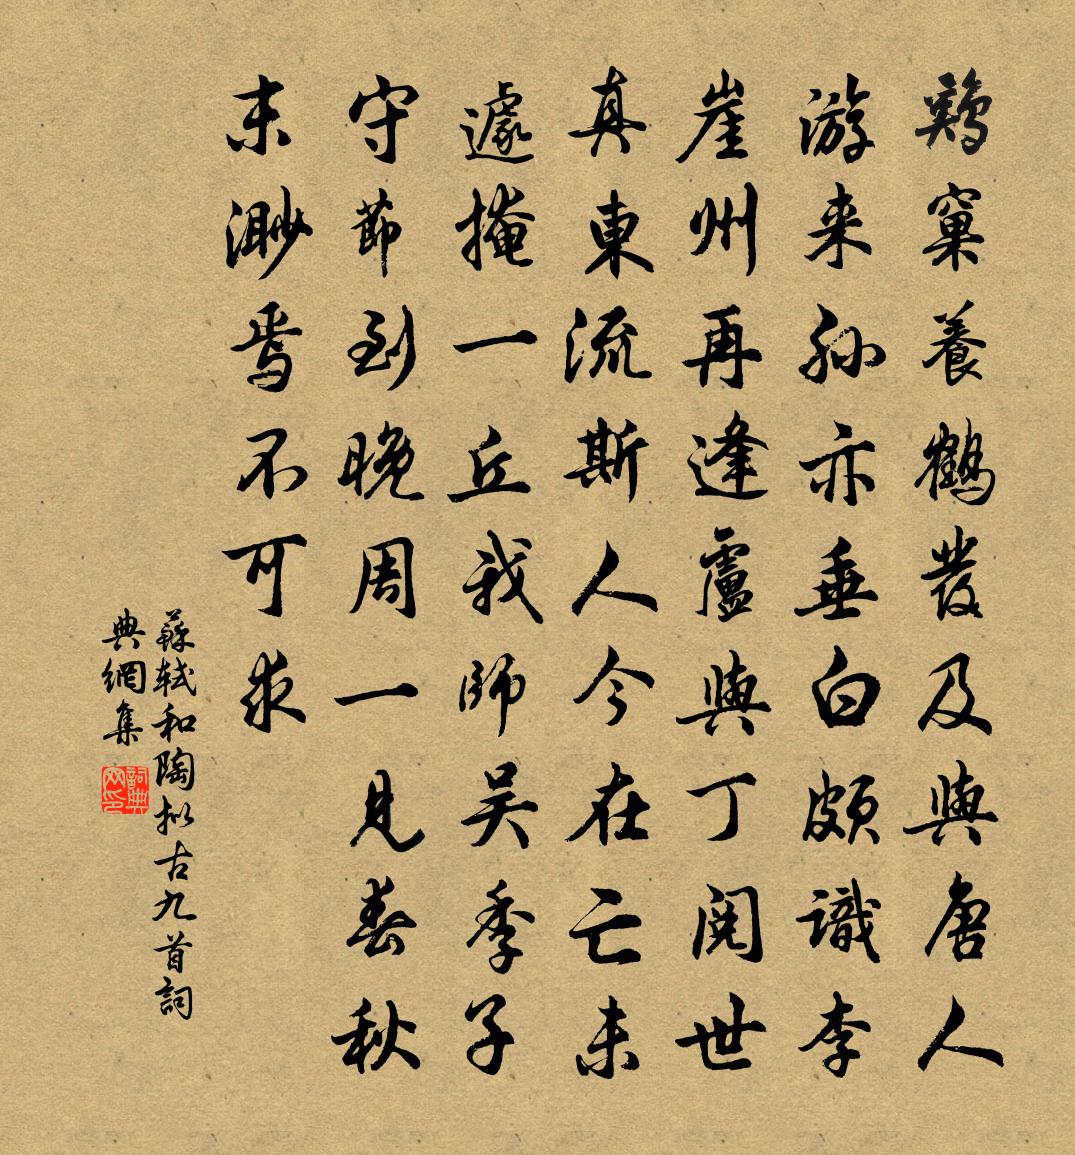 鷄窠養鶴發及與唐人
游来孙亦垂白頗識李
崖州再逢盧與丁閱世
真東流斯人今在亡未
遽掩一丘我師吳季子
守節到晚周一見春秋
末渺焉不可求
蘇軾和陶拟古九首詞
典網集
詞典网印